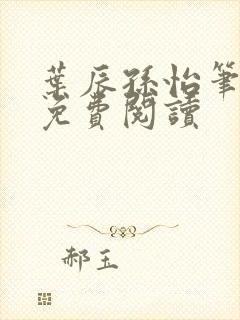 葉辰孫怡筆
免費閱讀
郝玉